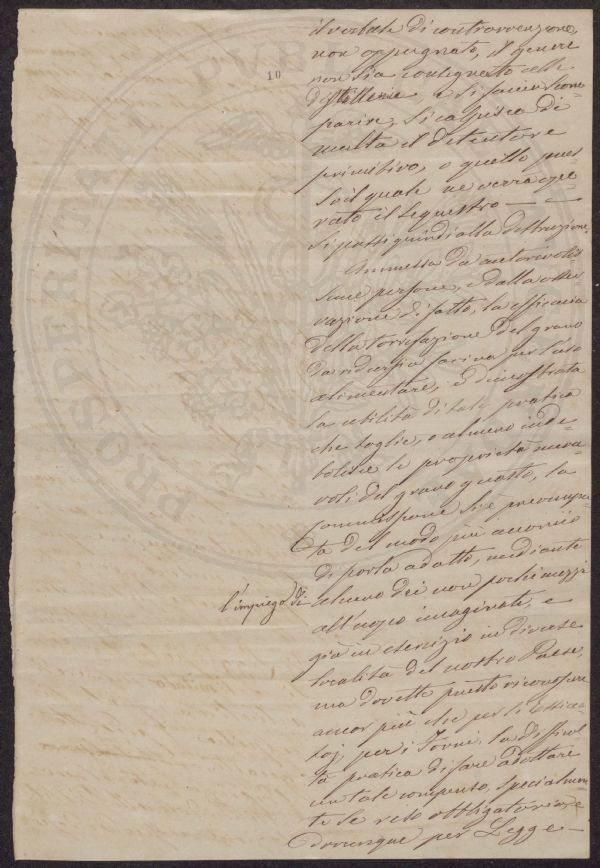 10
il verbale di contravvenzione,
non oppugnato, il genere
non sia consegnato alle
distillerie e si faccia scom-
parire, si colpisce di
multa il detentore
primitivo, o quello pres-
so il quale ne verrà ope-
rato il sequestro —
Si passi quindi alla distruzione.
Ammessa da autorevolis-
sime persone, e dalla osser-
vazione di fatto, la efficacia
della torrefazione del grano
da ridursi a farina per l'uso
alimentare, e dimostrata
la utilità di tale pratica
che toglie, o almeno inde-
bolisce le proprietà
del grano guasto, la
Commissione si è preoccupa-
ta del modo più acconcio
di porla adatto, mediante
l'impiego di
alcuno dei non pochi mezzi
all'uopo imaginati, e
già in esercizio in diverse
località del nostro Paese,
ma dovette presto riconoscere
ancor più che per li Essica-
toj, per i Forni, la difficol-
tà pratica di fare adottare
un tale compenso, specialmen-
te se reso obbligatorio e
dovunque per Legge —